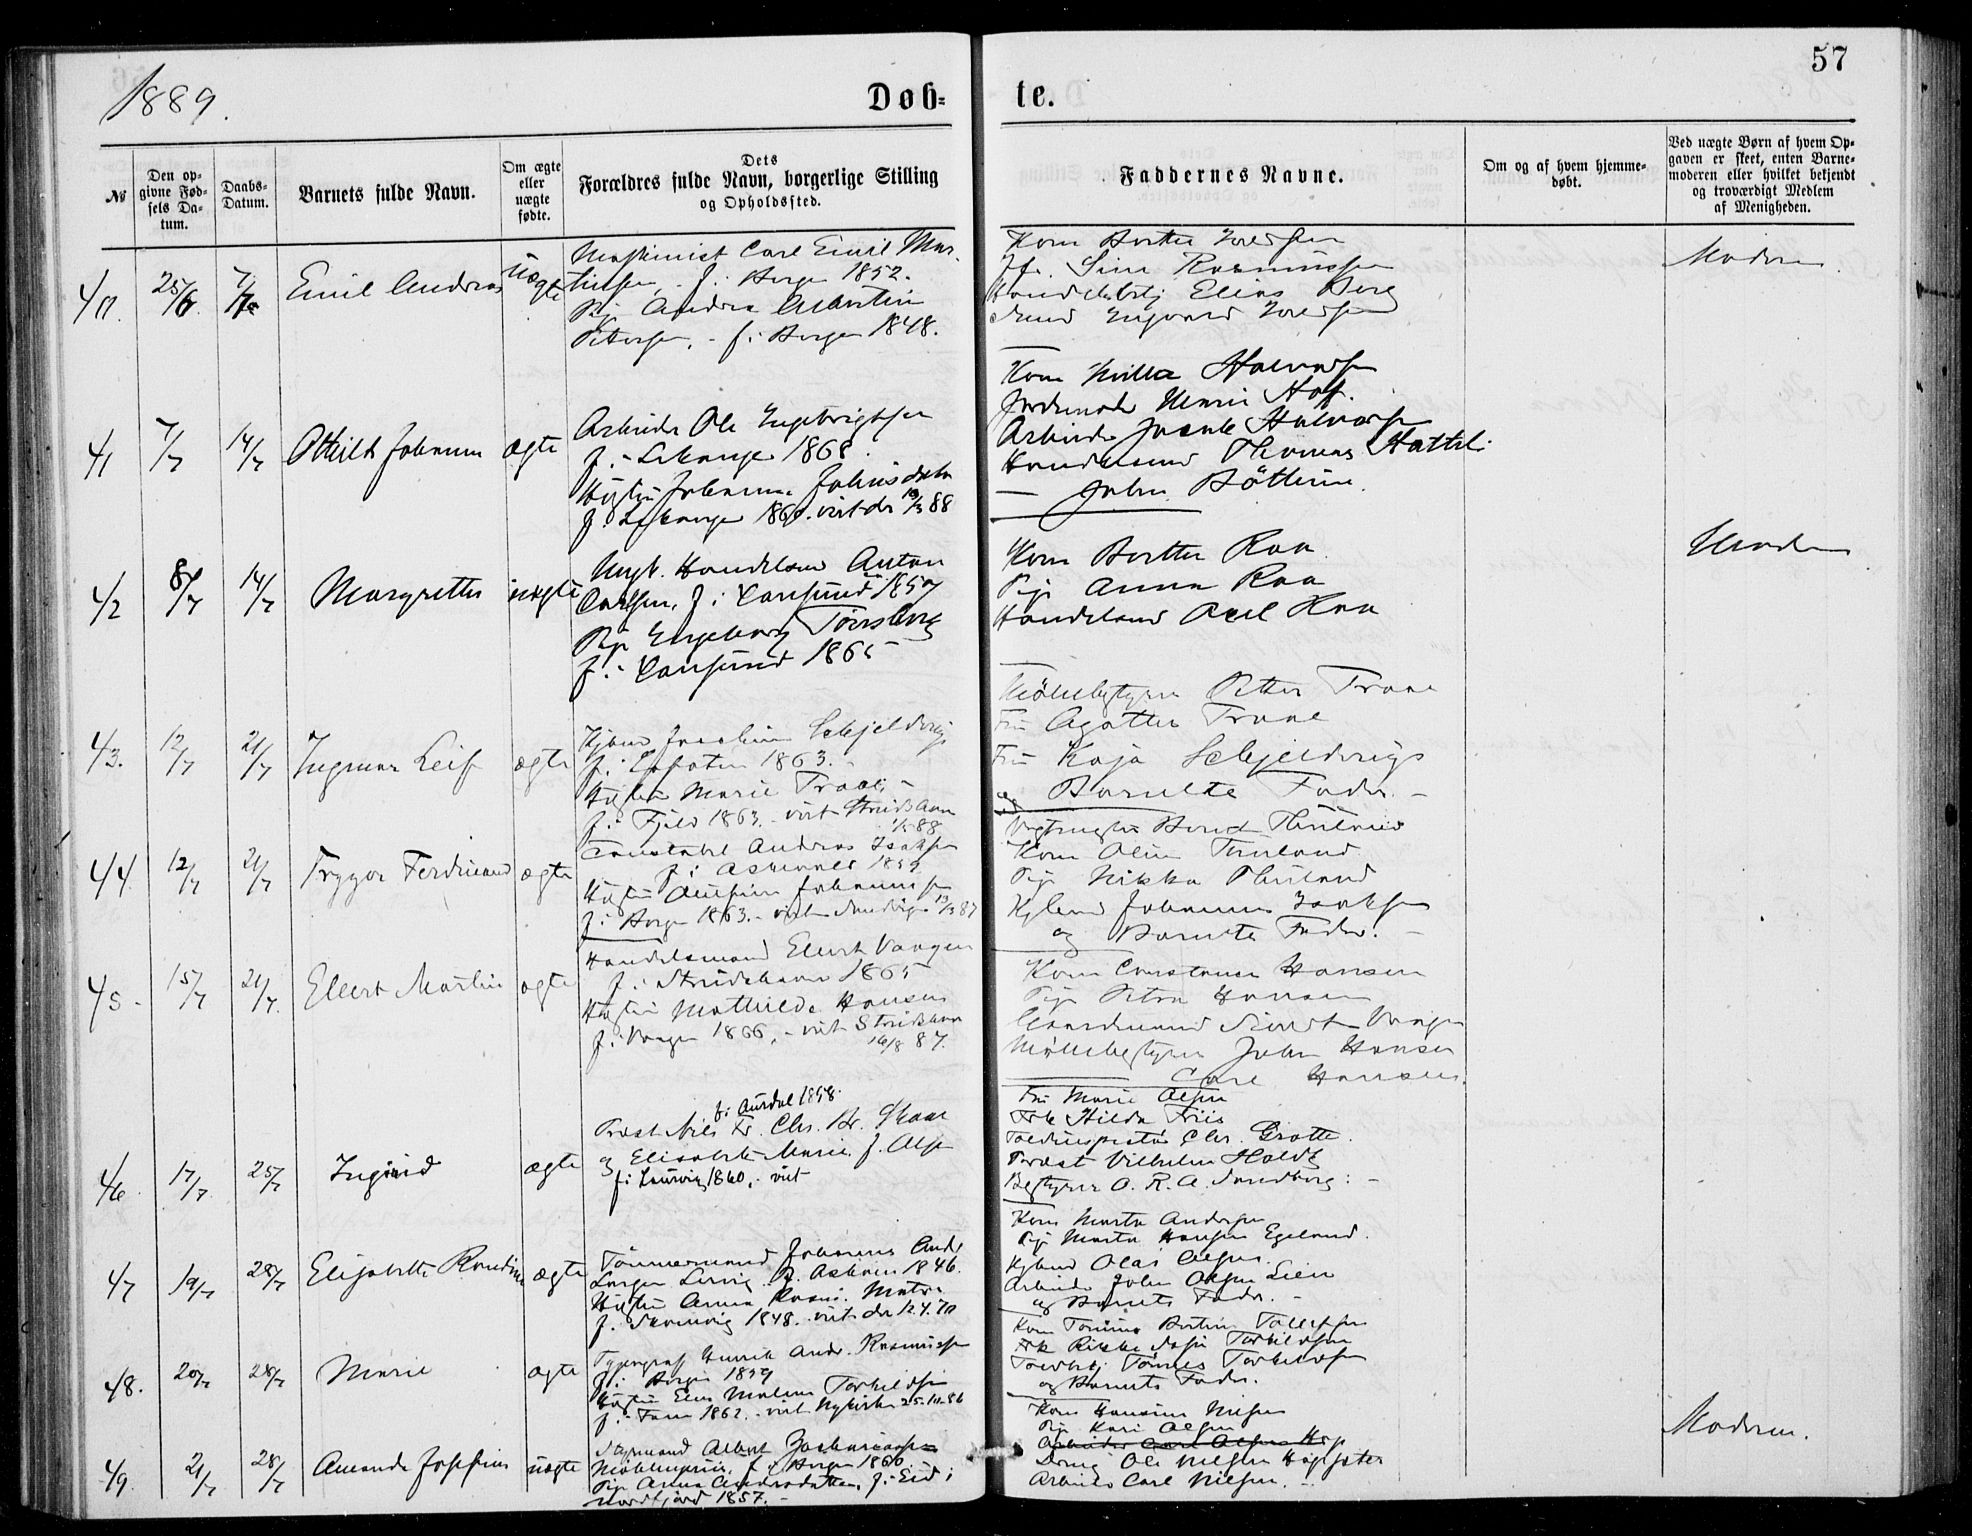 1889.
Døb=
te.
57
№
Den op-
givne Fød-
sels Da-
tum.
Daabs-
Datum.
Barnets fulde Navn.
Om ægte
eller
uægte
fødte.
Dets
Forældres fulde Navn, borgerlige Stilling
og Opholdssted.
Faddernes Navne.
Om og af hvem hjemme-
døbt.
Ved uægte Børn af hvem Op-
gaven er skeet, enten Barne-
moderen eller hvilket bekjendt
og troværdigt Medlem
af Menigheden.
40. 25/6. 7/7 Emil Andreas uægte
Maskinist Carl Emil Mar-
tinsen, f. i Bergen 1852.
Pige Andrea Albertine
Petersen, - f. i Bergen 1848.
Kone Berthe Iversen
Jfr. Sine Rasmussen
Handelsbetj Elias Berg
Ingvard Iversen
Moderen.
41 7/7 14/7 Othild Johanne ægte
Arbeider Ole Ingebrigtsen
f. i Lekanger 1868.
Hustru Johanne Johnsdatter
1860. viet der 88
Kone Milla Halvorsen
Jordemoder Marie Hof.
Arbeider Jacob Halvorsen
Handelsmand Thomas Hattel
— John Bøthun
42 8/7 14/7 Margrethe uægte
Ungk. Handelsmand Anton
Carlsen, f. i Karsund 1857
Pige Engeborg Tønsberg
f. i Karsund 1865
Kone Berthe Raa
Pige Anna Raa
Handelsmand Axel Haa
Moderen
43. 12/7 21/7 Ingmar Leif ægte
Joachim Schjelderup
f. i 1863. -
Hustru Marie Trane -
f. i Fjeld 1863. - viet Strudshavn
88
Møllebestyrer Petter Trane
Fru Agathe Trane
Fru Kaja Schjelderup
og Barnets Fader. -
44. 12/7 21/7 Trygve Ferdinand ægte
Constabel Andreas Isaksen
f. i Askevold 1859
Hustru Johannessen
f. i Bergen 1863. - viet 87
Bernt Thuland
Kone Oline Thuland
Pige Rikka Thuland
Johannes Isaksen
og Barnets Fader. -
45. 15/7 21/7. Elert Martin ægte
Handelsmand Elert Vangen
f. i Strudshavn 1865
Hustru Mathilde Hansen
f. i Vangen 1866, - viet Strudshavn
16/8 87.
Kone Constance Hansen
Pige Petra Hansen
Gaardmand Sivert Vangen
Møllebestyrer John Hansen
— Carl Hansen.
46. 17/7 25/7 Ingrid ægte
f. i Aurdal 1858.
Præst Nils Fr. Chr. Br. Skaar
og Elisabeth Marie f. Olsen
f. i Laurvig 1860, - viet
Fru Marie Olsen
Frk Hilda Friis
Toldinspektør Chr. Grotte.
Præst Vilhelm Holdt
Bestyrer O. R. A. Sandberg. -
47 19/7 28/7 Elisabeth Randine ægte
Tømmermand Johannes Andr.
Larsen f. Askøen 1846.
Hustru Anna
f. 1848. - viet der 12.4.70
Kone Marta Andersen
Pige Marta Hansen Egeland.
Olai Olsen.
Arbeider John Olsen Lien
og Barnets Fader. -
48. 20/7 28/7 Marie ægte
Typograf Henrik Andr. Rasmussen
f. i Bergen 1859
Hustru Malene Torkildsen
f. i Fane 1862. - viet Nykirken 25.10.86
Kone Tomine Bertine Tollefsen
Frk Rikke Torkildsen
Toldbetj Tønnes Torkildsen
og Barnets Fader.
49. 21/7 28/7 Amanda Josefine uægte
Styrmand Albert Zachariassen
f. i Bergen 1860.
Pige Anna Andersdatter, f. i Eid i
Nordfjord 1857. -
Kone Hansine Nilsen
Pige Kari Olsen
Arbeider Carl Olsen
Dreng Ole Nilsen
Arbeider Carl Nilsen. -
Moderen.